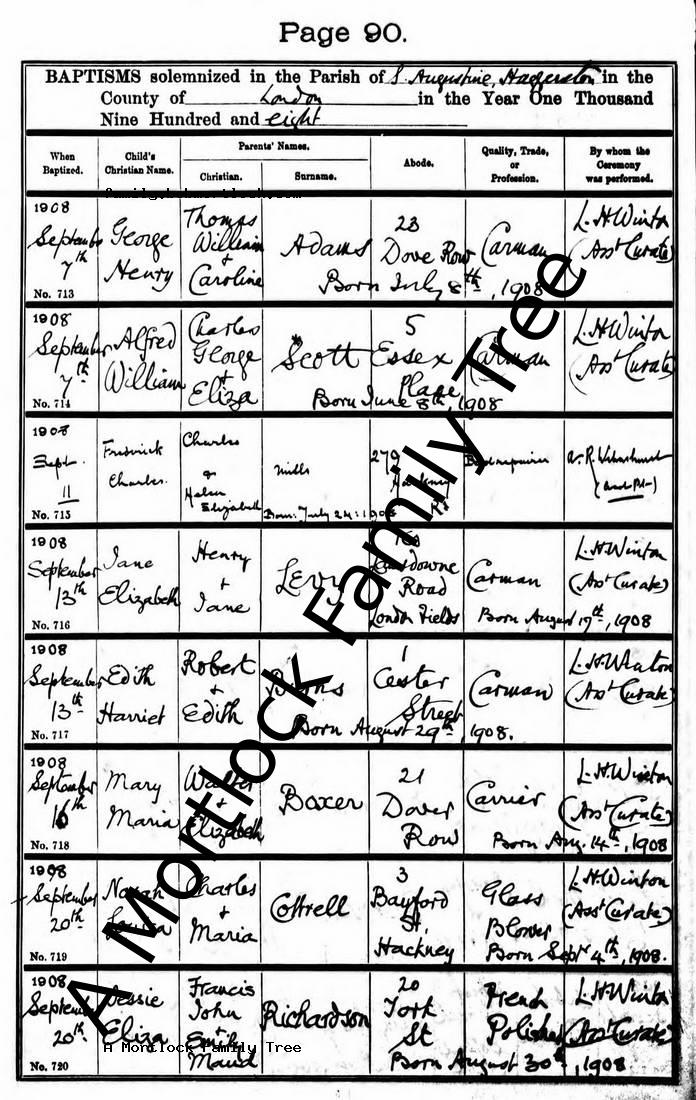 Page 90.
BAPTISMS solemnized in the Parish of S. Augustine, Haggerston in the
County of London in the Year One Thousand
Nine Hundred and eight
When Baptized.
Child's Christian Name.
Parents' Names.
Christian.
Surname.
Abode.
Quality, Trade, or Profession.
By whom the Ceremony was performed.
1908
September 7th
George Henry
Thomas William + Caroline
Adams
23 Dove Row
Carman
L. H. Winton (Asst Curate)
Born July 8th, 1908
No. 713
1908
September 7th
Alfred William
Charles George + Eliza
Scott
5 Essex Place
Carman
L. H. Winton (Asst Curate)
Born June 8th, 1908
No. 714
1908
Sept. 11
Frederick Charles
Charles & Helen Elizabeth
Mills
Hackney Rd
Born: July 24: 1908
No. 715
1908
September 13th
Jane Elizabeth
Henry + Jane
Levy
Lansdowne Road London Fields
Carman
L. H. Winton (Asst Curate)
Born August 17th, 1908
No. 716
1908
September 13th
Edith Harriet
Robert + Edith
1 Cester Street
Carman
L. H. Winton (Asst Curate)
Born August 29th, 1908.
No. 717
1908
September 16th
Mary Maria
Walter + Elizabeth
Boxer
21 Dover Row
Carrier
L. H. Winton (Asst Curate)
Born Aug. 14th, 1908
No. 718
1908
September 20th
Charles + Maria
Cottrell
3 Bayford St. Hackney
Glass Blower
L. H. Winton (Asst Curate)
Born Sept 4th, 1908.
No. 719
1908
September 20th
Jessie Eliza
Francis John + Emily Maud
Richardson
20 York St
French Polisher
L. H. Winton (Asst Curate)
Born August 30th, 1908
No. 720
A Mortlock Family Tree
A Mortlock Family Tree